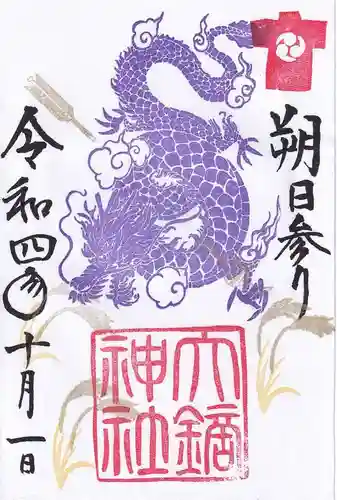 朔日参り
六鏑
神社
令和四年十月一日